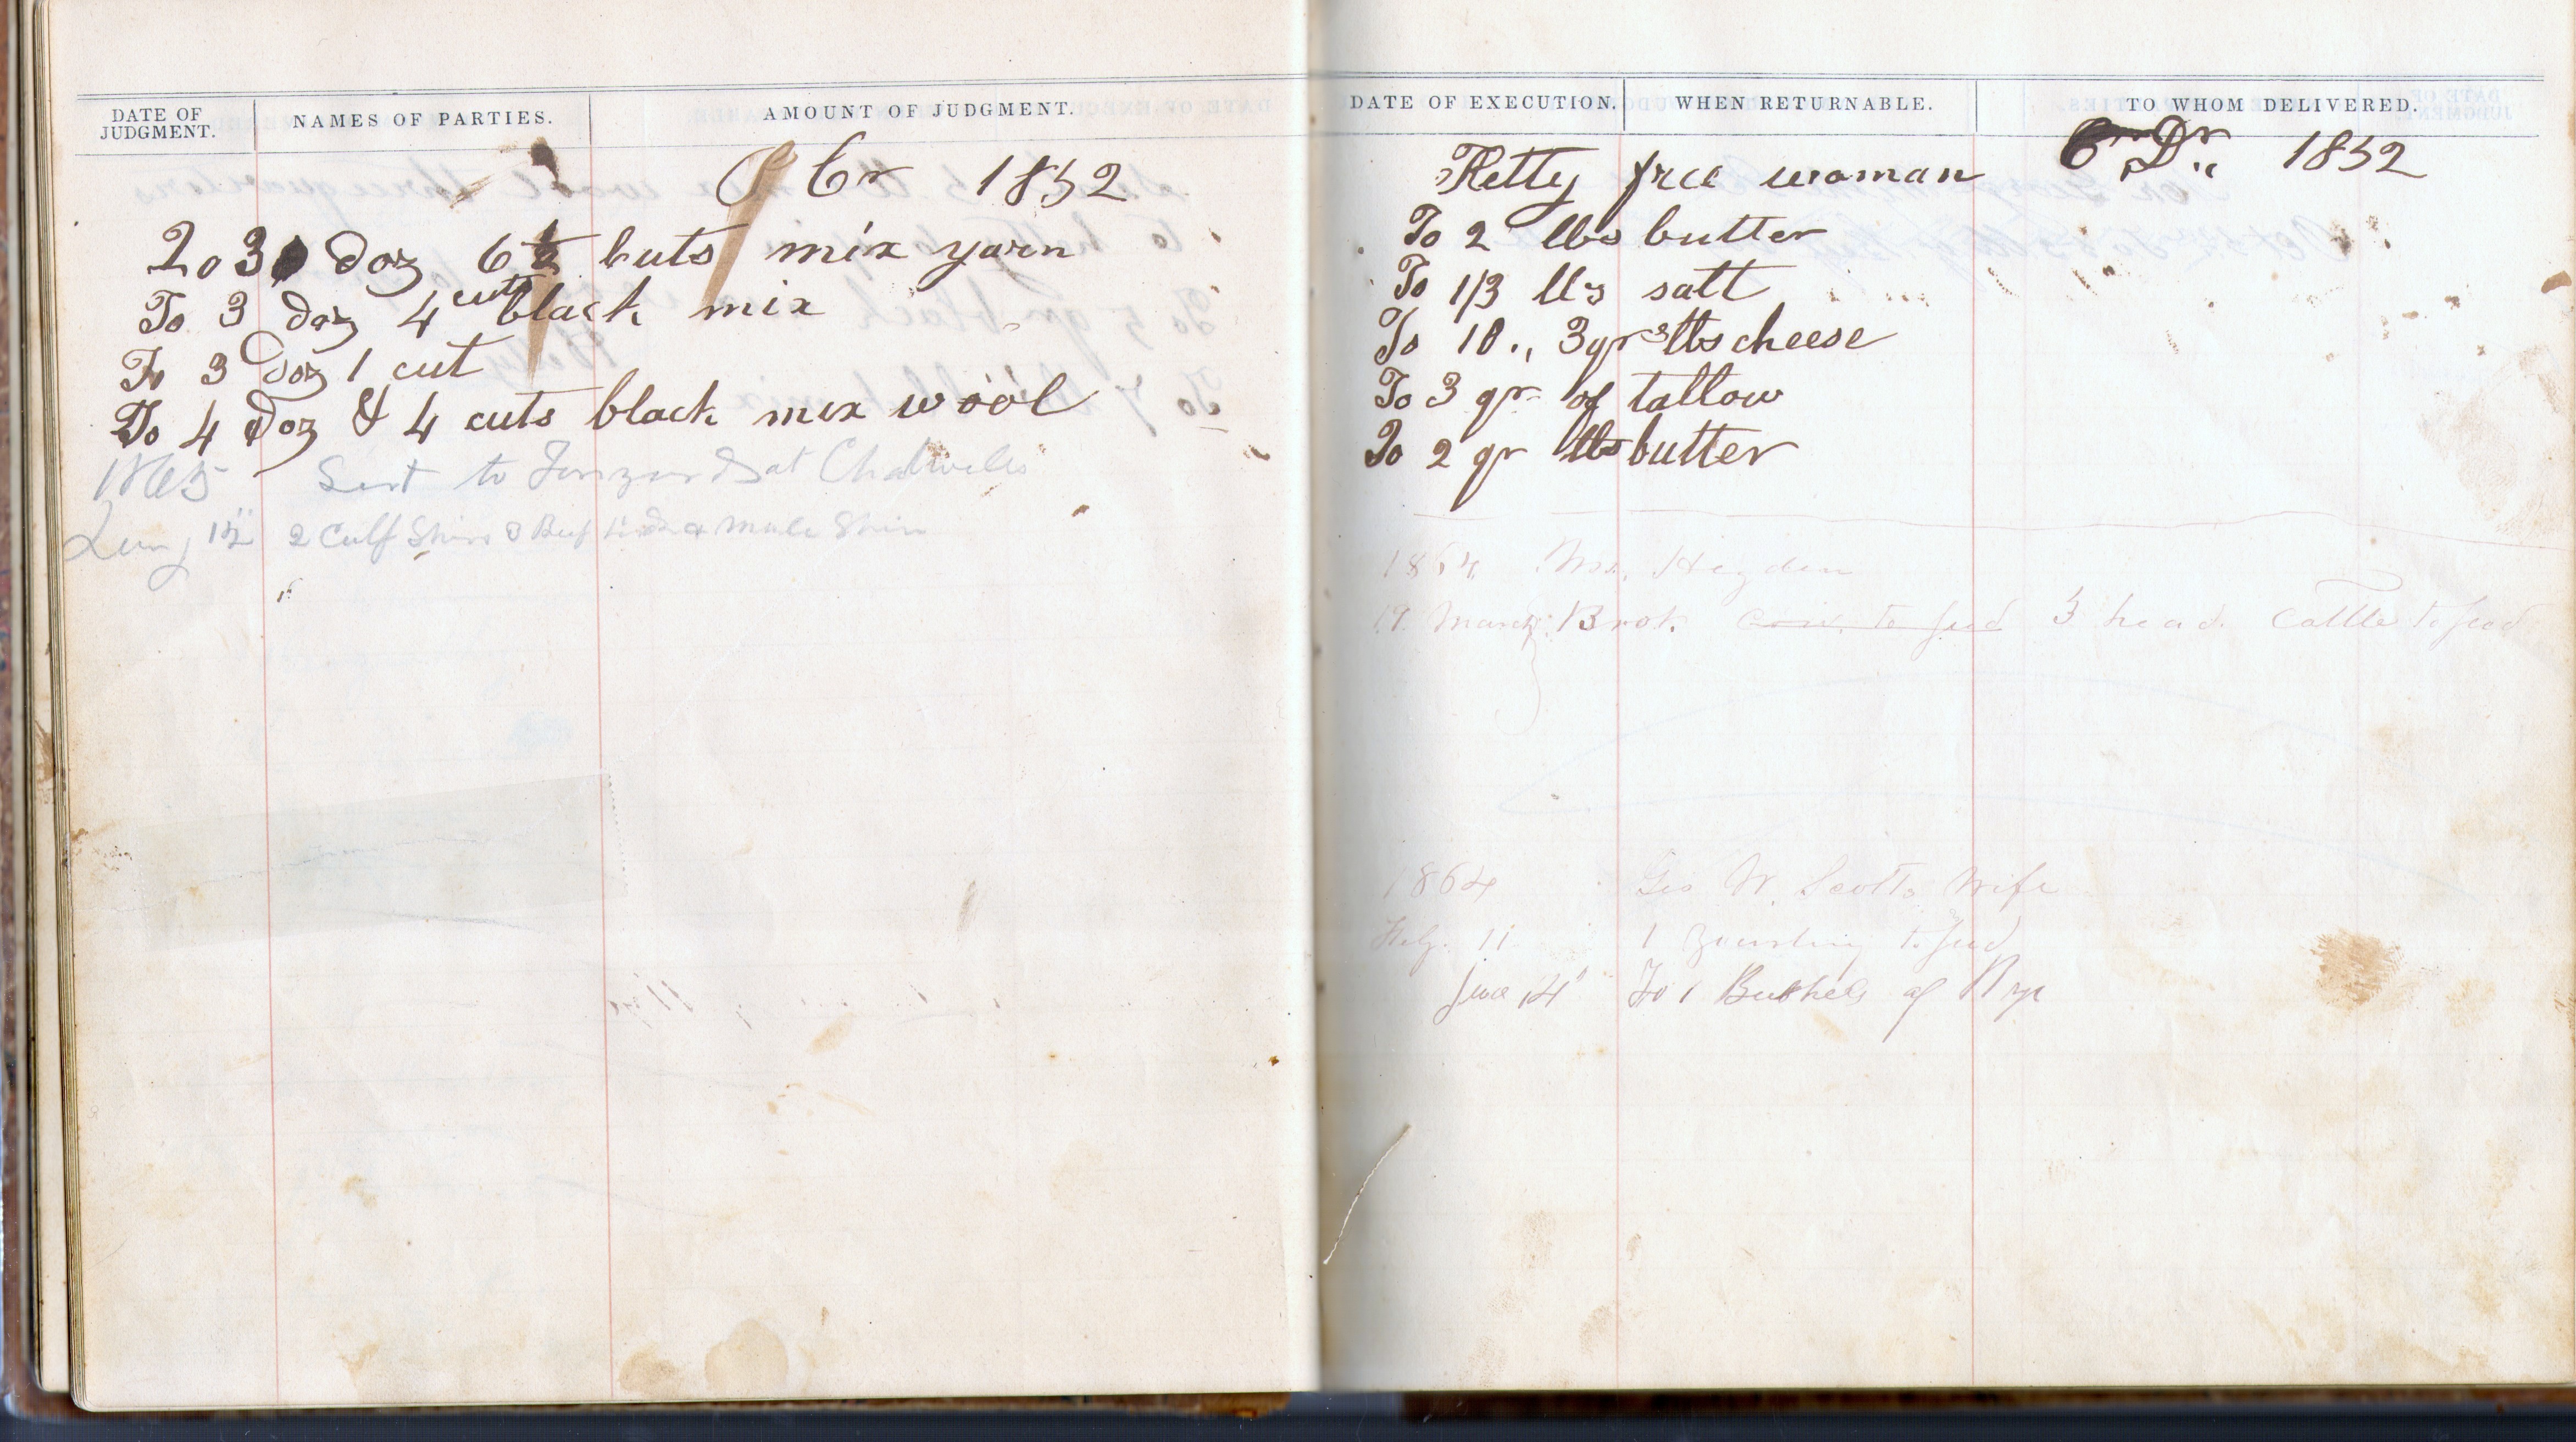 DATE OF JUDGMENT. NAMES OF PARTIES. AMOUNT OF JUDGMENT.
Cr 1852
To 3 doz 6 1/2 cuts mix yarn
To 3 doz 4 cuts black mix
To 3 doz 1 cut
To 4 doz & 4 cuts black mix wool
1865 Sent to at
15 2 Calf Skins 3 Beef & Mule Skin
DATE OF EXECUTION. WHEN RETURNABLE. TO WHOM DELIVERED.
Hetty free woman Dr 1852
To 2 lbs butter
To 1/3 lbs salt
To 10 ,, 3 qrs lbs cheese
To 3 qr of tallow
To 2 qr lbs butter
1864 Mr. Hayden
19 March Brot. corn to feed 3 head cattle to feed
1864 Geo W. Scotts Wife
11 1 to feed
June 14 To 1 Bushels of Rye